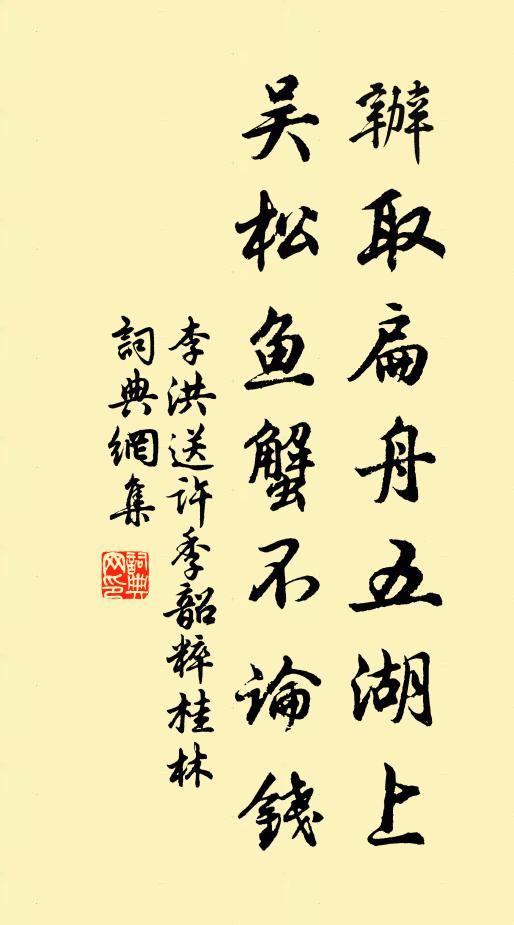 辦取扁舟五湖上
吴松鱼蟹不論錢
李洪送许季韶粹桂林
詞典網集
詞典網印